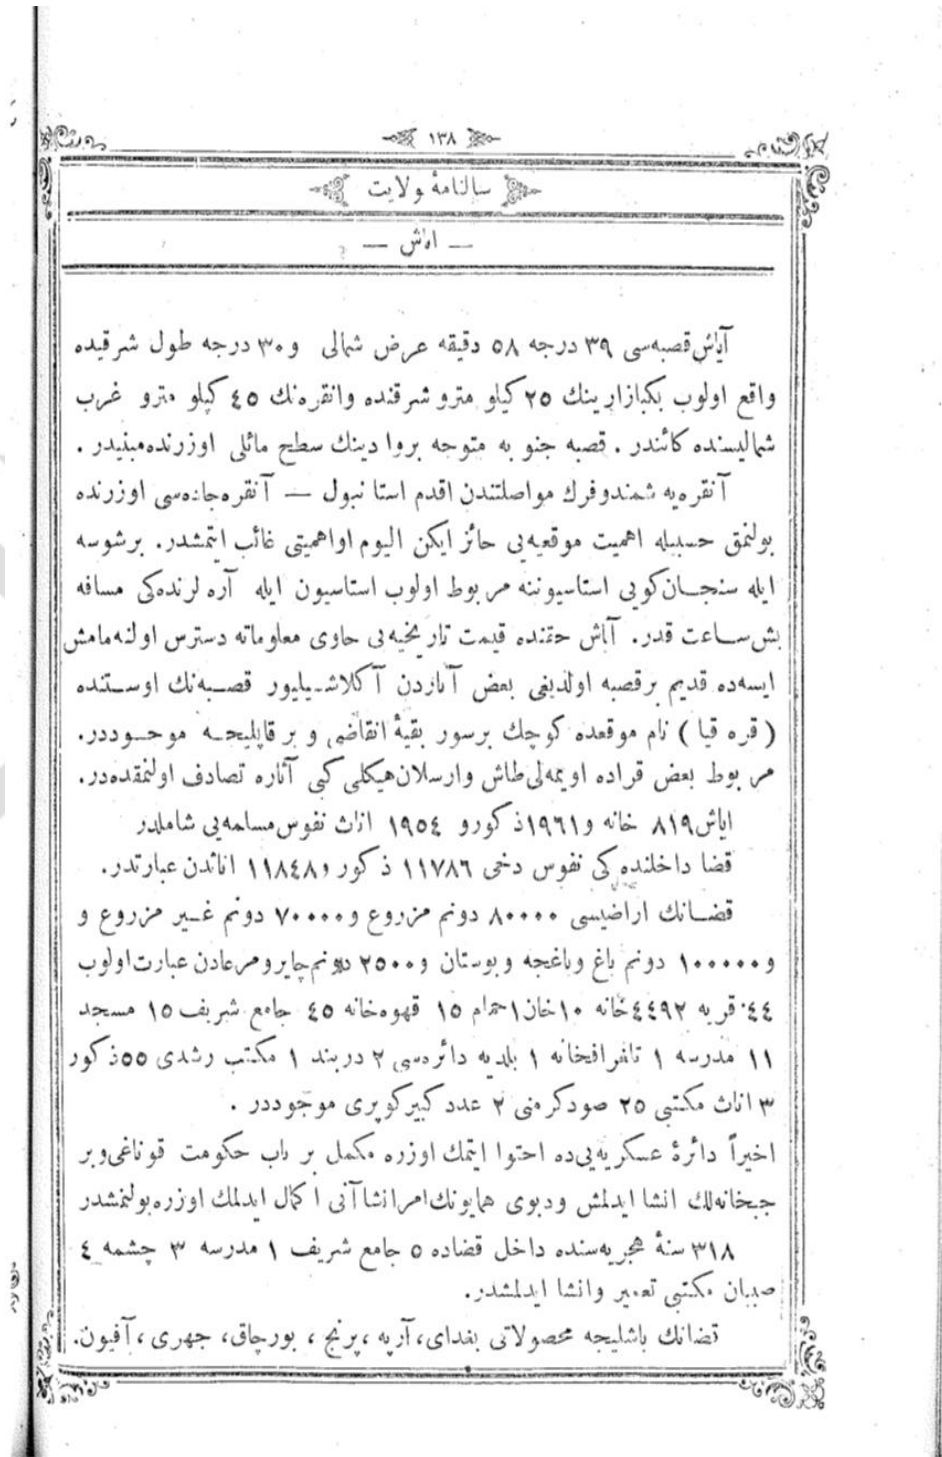 ١٣٨
سالنامهٔ ولایت
— ایاش —
آیاش قصبه‌سی ٣٩ درجه ٥٨ دقیقه عرض شمالی و ٣٠ درجه طول شرقیده
واقع اولوب بكبازارینك ٢٥ كیلو مترو شرقنده وانقره‌نك ٤٥ كیلو مترو غرب
شمالیسنده كائندر . قصبه جنو به متوجه بروا دینك سطح مائلی اوزرنده مبنیدر .
آنقره‌یه شمندوفرك مواصلتندن اقدم استا نبول — آنقره جاده‌سی اوزرنده
بولنمق حسبیله اهمیت موقعیه‌یی حائز ایكن الیوم اواهمیتی غائب ایتمشدر. برشوسه
ایله سنجان كویی استاسیوننه مربوط اولوب استاسیون ایله آره لرنده‌كی مسافه
بش ساعت قدر. آیاش حقنده قیمت تاریخیه‌یی حاوی معلوماته دسترس اولنه‌مامش
ایسه‌ده قدیم برقصبه اولدیغی بعض آثاردن آكلاشیلیور قصبه‌نك اوستنده
( قره قیا ) نام موقعده كوچك برسور بقیهٔ انقاضی و بر قاپلیجه موجوددر.
مربوط بعض قراده اویمه‌لی طاش وارسلان هیكلی كبی آثاره تصادف اولنمقده‌در.
ایاش ٨١٩ خانه و ١٩٦١ ذكورو ١٩٥٤ اناث نفوس مسلمه‌یی شاملدر
قضا داخلنده كی نفوس دخی ١١٧٨٦ ذكور و ١١٨٤٨ اناثدن عبارتدر.
قضانك اراضیسی ٨٠٠٠٠ دونم مزروع و ٧٠٠٠٠ دونم غیر مزروع و
و ١٠٠٠٠٠ دونم باغ وباغچه وبوستان و ٢٥٠٠ دونم چایر ومرعادن عبارت اولوب
٤٤ قریه ٤٤٩٢ خانه ١٠ خان ١ حمام ١٥ قهوه‌خانه ٤٥ جامع شریف ١٥ مسجد
١١ مدرسه ١ تلغرافخانه ١ بلدیه دائره‌سی ٢ دربند ١ مكتب رشدی ٥٥ ذكور
٣ اناث مكتبی ٢٥ صودكرمنی ٢ عدد كبیر كوپری موجوددر .
اخیراً دائرهٔ عسكریه‌یی‌ده احتوا ایتمك اوزره مكمل بر باب حكومت قوناغی وبر
جبخانه‌لك انشا ایدلمش ودبوی همایونك امر انشاآنی اكمال ایدلمك اوزره بولنمشدر
٣١٨ سنهٔ هجریه‌سنده داخل قضاده ٥ جامع شریف ١ مدرسه ٣ چشمه ٤
صبیان مكتبی تعمیر وانشا ایدلمشدر.
قضانك باشلیجه محصولاتی بغدای، آرپه ، پرنج ، بورچاق، جهری ، آفیون.